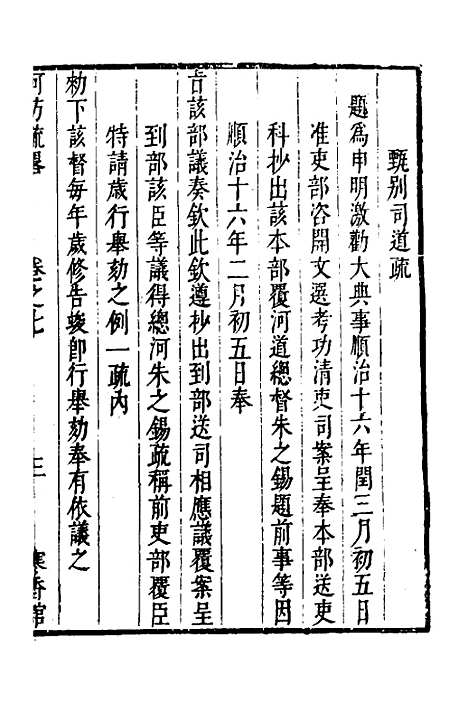 甄別司道疏
題爲申明激勸大典事順治十六年閏三月初五日
准吏部咨開文選考功清吏司案呈奉本部送吏
科抄出該本部覆河道總督朱之錫題前事等因
順治十六年二月初五日奉
旨該部議奏欽此欽遵抄出到部送司相應議覆案呈
到部該臣等議得總河朱之錫疏稱前吏部覆臣
特請歲行舉劾之例一疏內
勑下該督每年歲修告竣卽行舉劾奉有依議之
河防疏畧 卷之七 三 寒香館